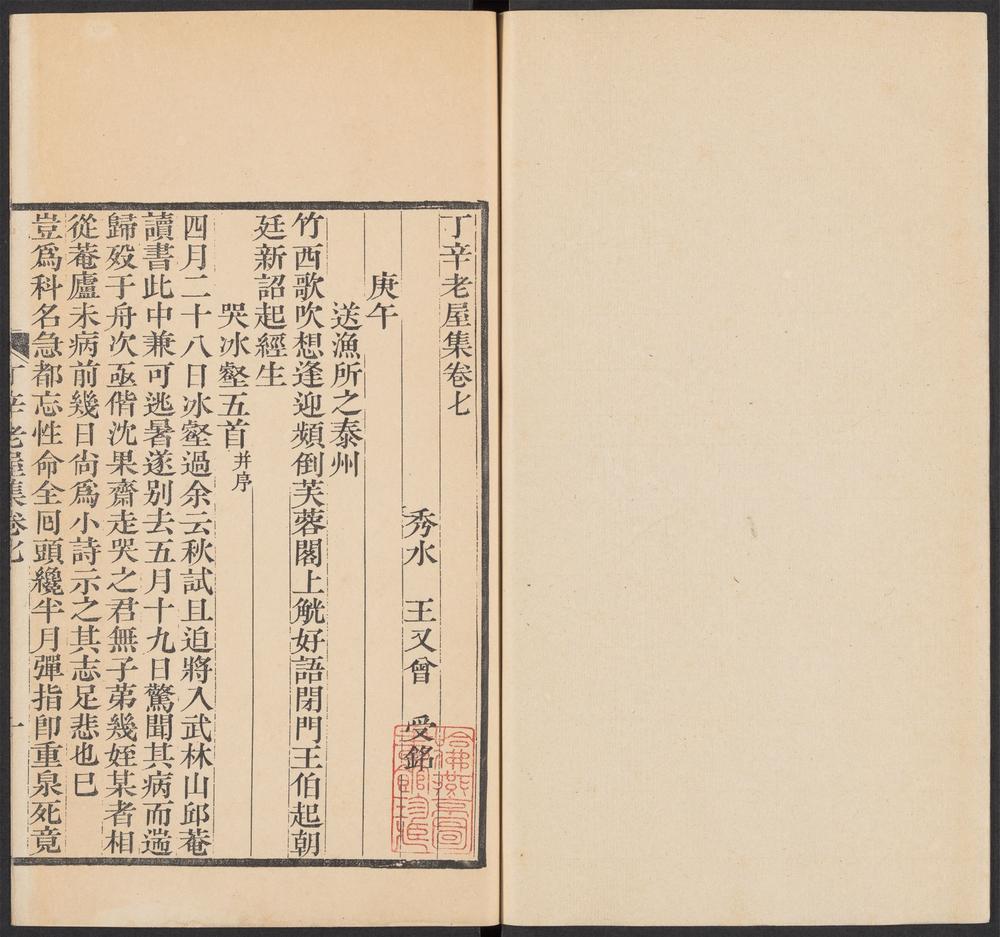 丁辛老屋集卷七
秀水 王又曾 受銘
庚午
送漁所之泰州
竹西歌吹想逢迎頻倒芙蓉閣上觥好語閉門王伯起朝
廷新詔起經生
哭冰壑五首并序
四月二十八日冰壑過余云秋試且迫將入武林山邱菴
讀書此中兼可逃暑遂別去五月十九日驚聞其病而遄
歸歿于舟次亟偕沈果齋走哭之君無子弟幾姪某者相
從菴廬未病前幾日尙爲小詩示之其志足悲也巳
豈爲科名急都忘性命全回頭纔半月彈指卽重泉死竟
丁辛老屋集卷七 一
哈佛燕京圖書館珍藏